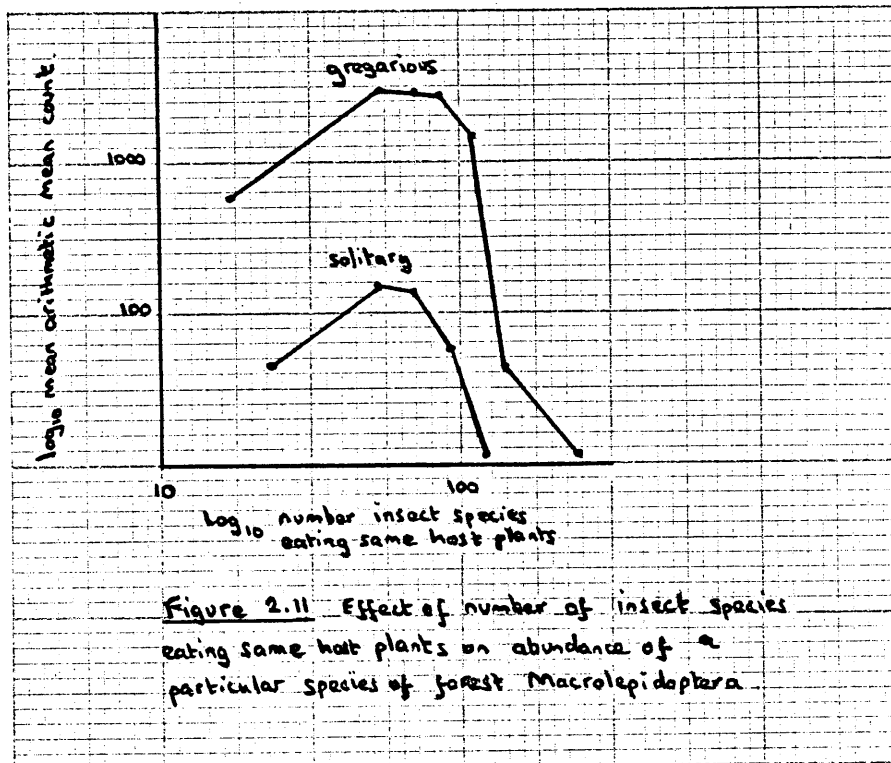 log₁₀ mean arithmetic mean count.
gregarious
1000
solitary
100
10
100
Log₁₀ number insect species
eating same host plants
Figure 2.11 Effect of number of insect species
eating same host plants on abundance of a
particular species of forest Macrolepidoptera